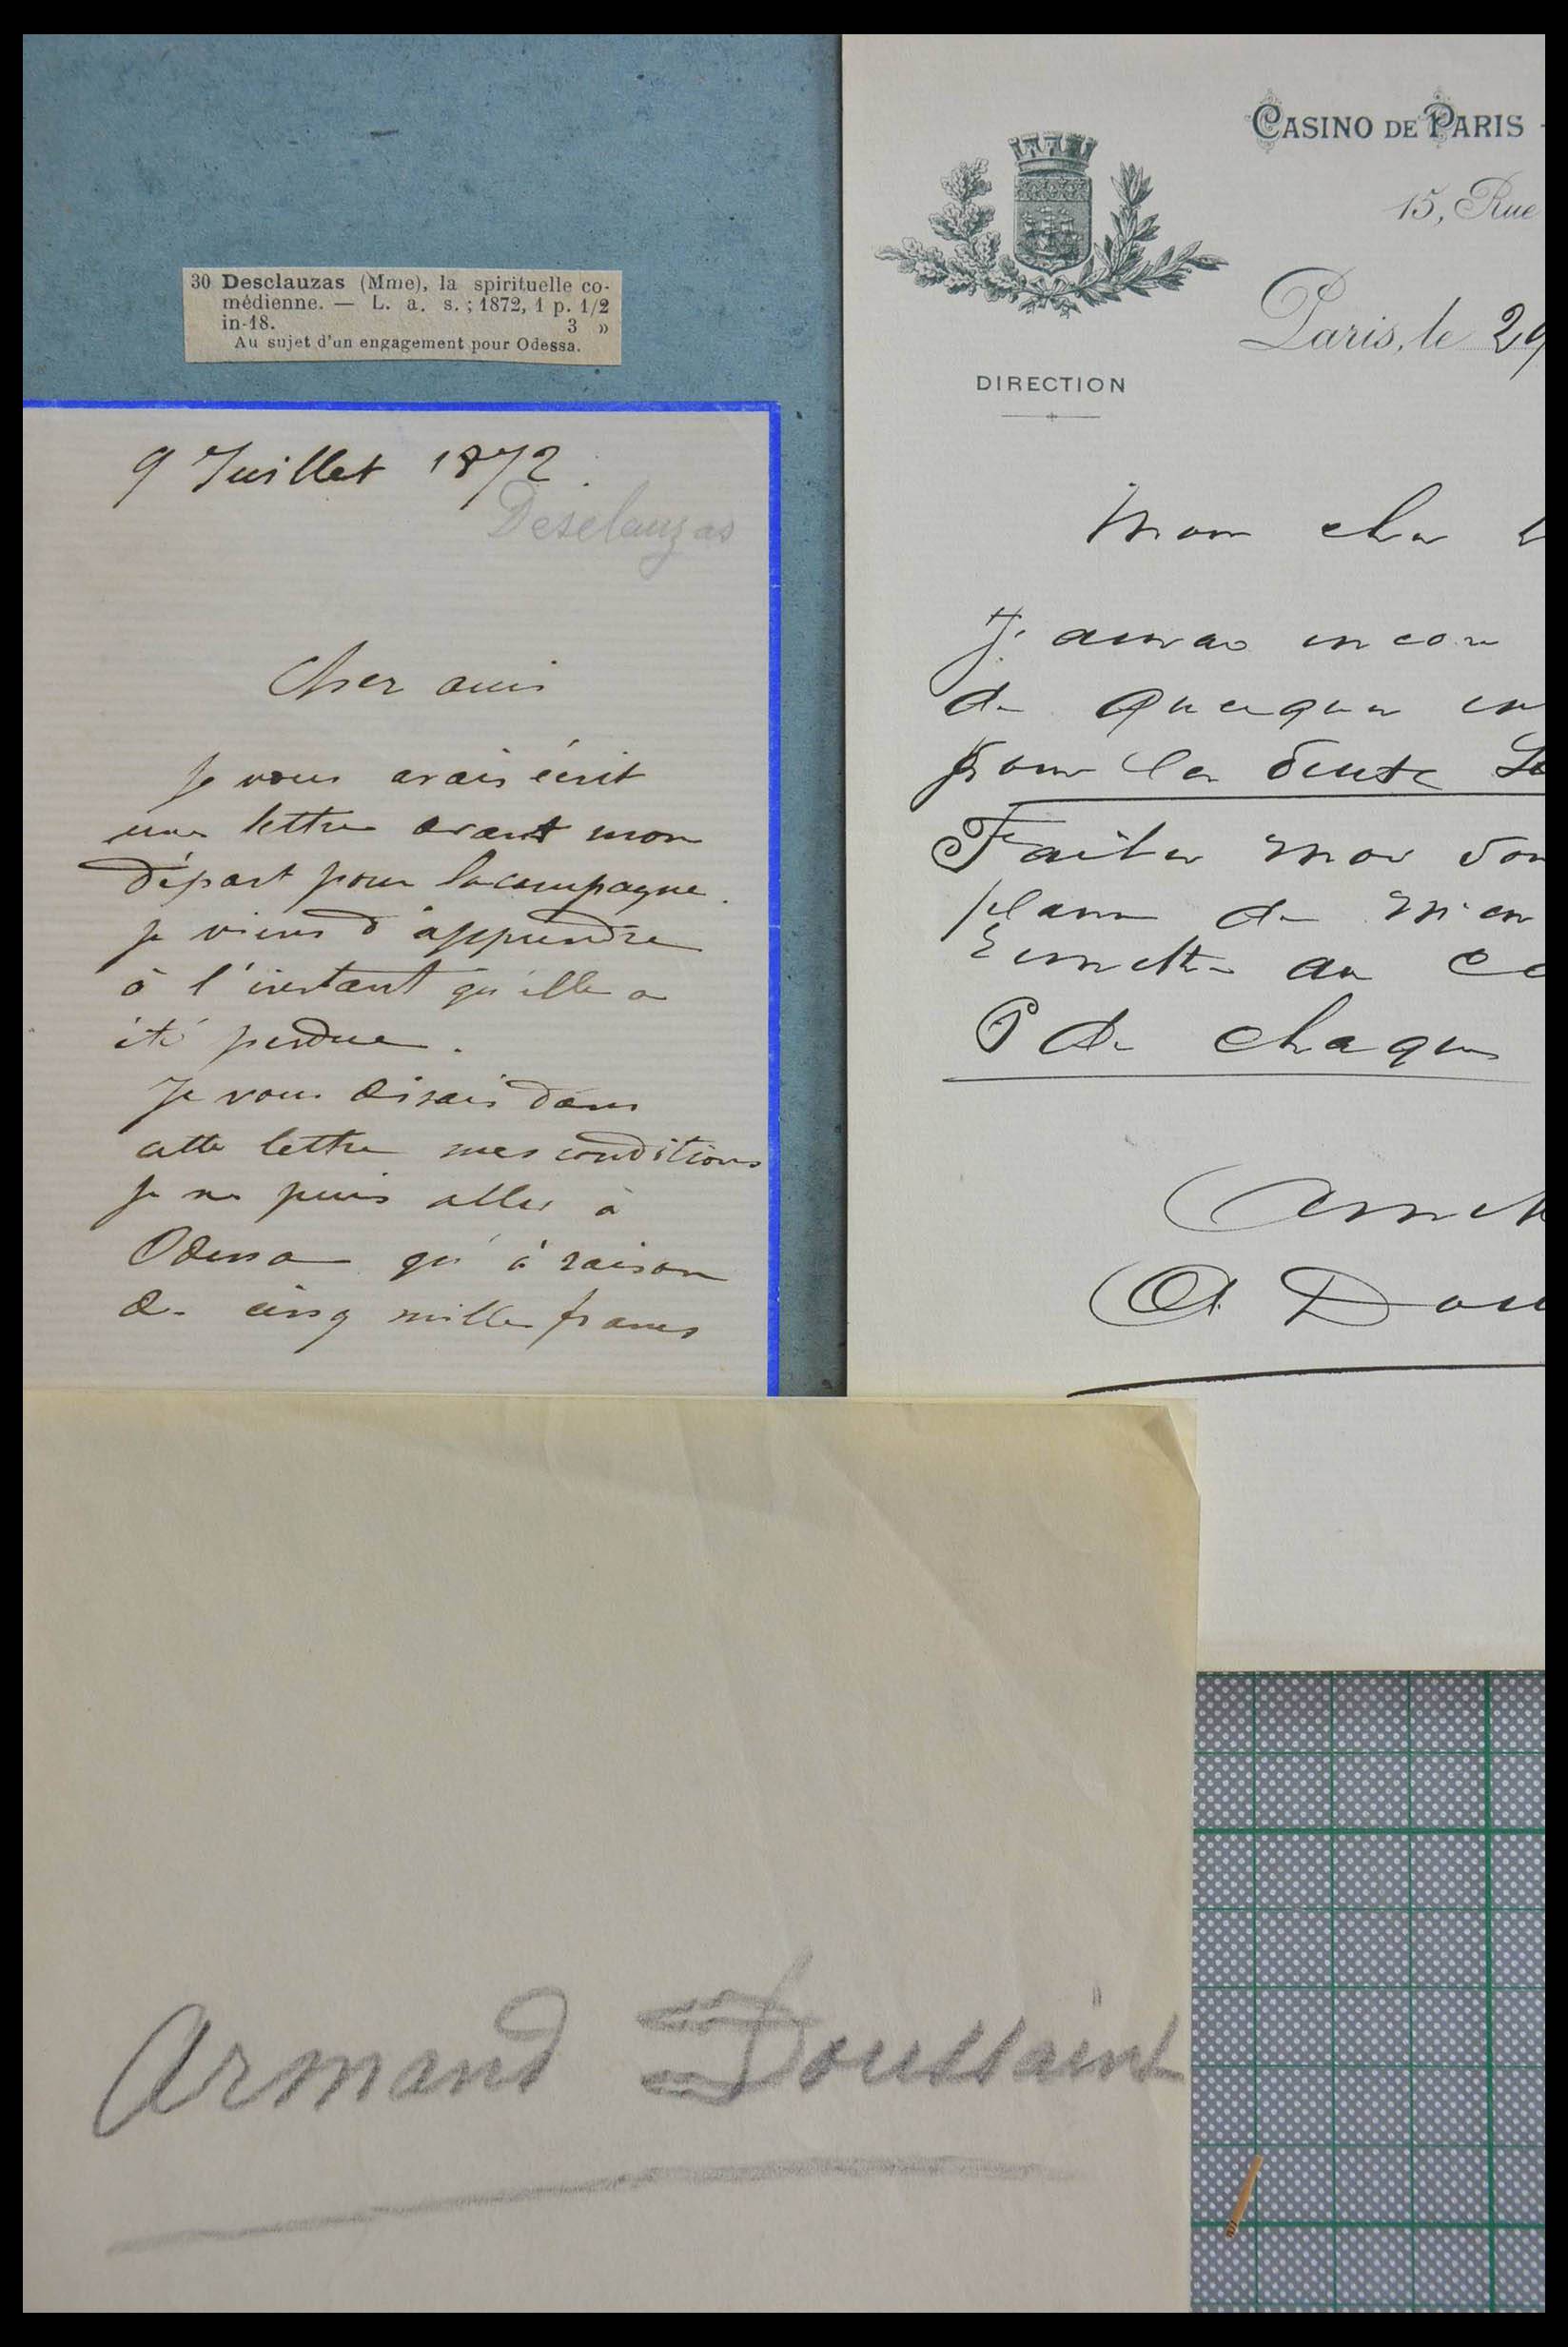 30 Desclauzas (Mme), la spirituelle co-
médienne. — L. a. s. ; 1872, 1 p. 1/2
in-18. 3 »
Au sujet d'un engagement pour Odessa.
9 Juillet 1872.
Desclauzas
Cher ami
Je vous avais écrit
une lettre avant mon
départ pour la campagne.
je viens d'apprendre
à l'instant qu'elle a
été perdue.
Je vous disais dans
cette lettre mes conditions
je ne puis aller à
Odessa qu'à raison
de cinq mille francs
CASINO DE PARIS -
15, Rue
Paris, le 29
DIRECTION
Mon cher
J'aurai encore
de quelques
pour la
Faites moi
de
remettre au
P de chaque
A Dou
Armand Doussaint